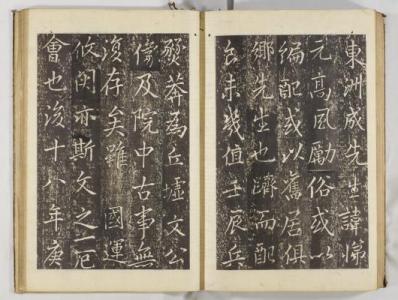 東洲成先生諱悌
元高風勵俗或以
編配或以舊居俱
鄉先生也隮而配
食未幾值壬辰兵
燹莽為丘墟文公
傳及院中古事無
復存矣雖 國運
攸關亦斯文之一厄
會也後十八年庚